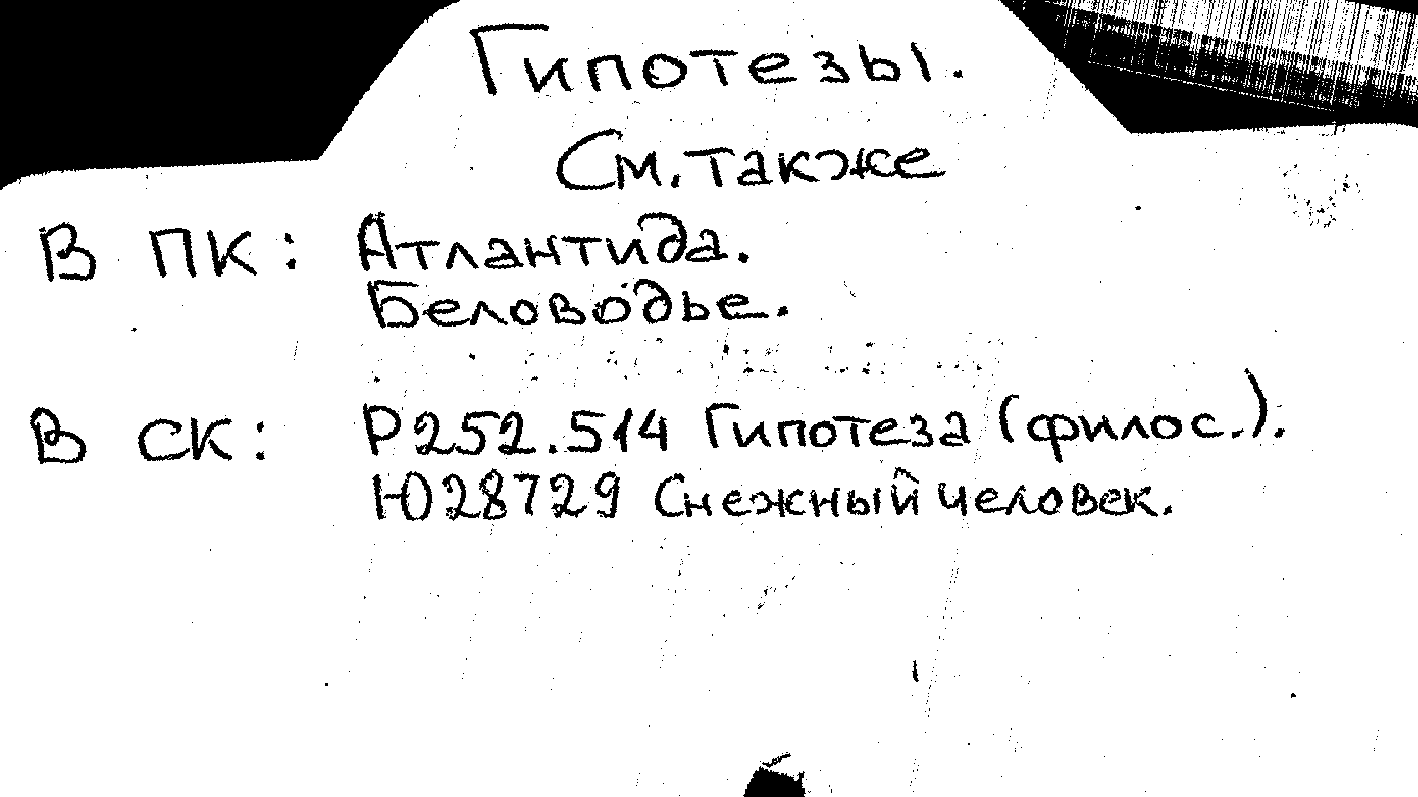 Гипотезы.
См. также
В ПК: Атлантида.
Беловодье.
В СК: Р252.514 Гипотеза (филос.).
Ю28729 Снежный человек.